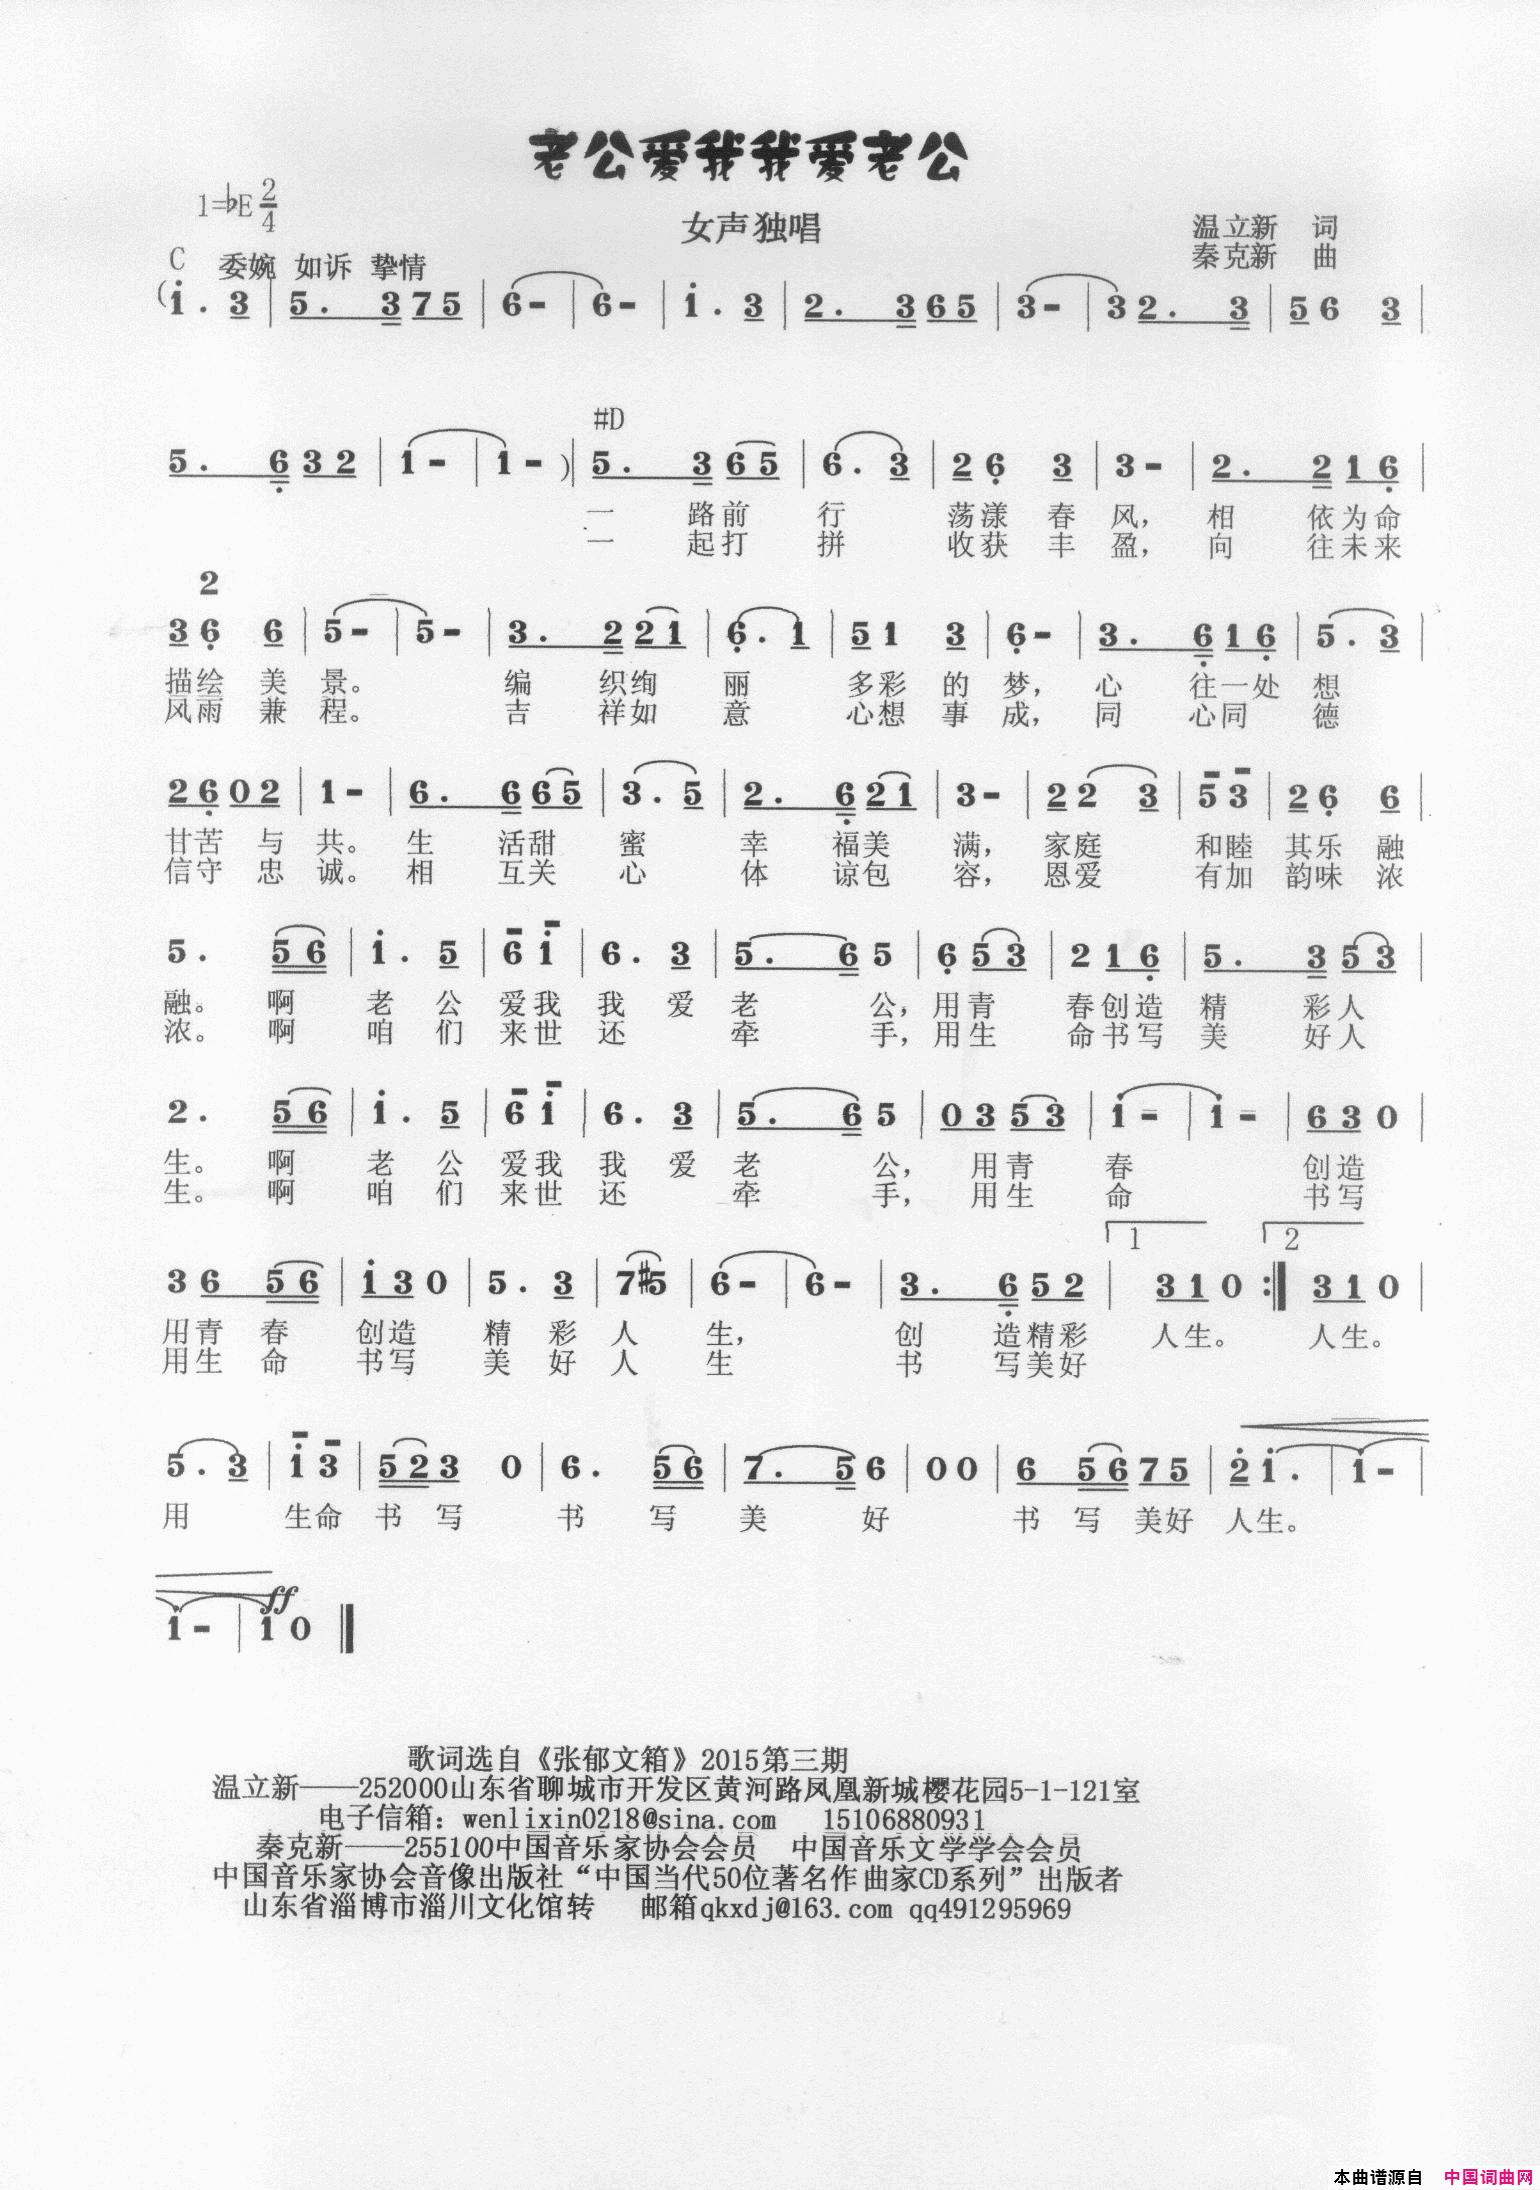 老公爱我我爱老公
1=♭E 2/4
女声独唱
温立新 词
秦克新 曲
C 委婉 如诉 挚情
(i . 3 | 5 . 3 7 5 | 6 - | 6 - | i . 3 | 2 . 3 6 5 | 3 - | 3 2 . 3 | 5 6 3 |
#D
5 . 6 3 2 | 1 - | 1 - ) | 5 . 3 6 5 | 6 . 3 | 2 6 3 | 3 - | 2 . 2 1 6 |
一 路前 行 荡漾 春 风， 相 依为命
一 起打 拼 收获 丰 盈， 向 往未来
2
3 6 6 | 5 - | 5 - | 3 . 2 2 1 | 6 . 1 | 5 1 3 | 6 - | 3 . 6 1 6 | 5 . 3 |
描绘 美 景。 编 织绚 丽 多彩 的 梦， 心 往一处 想
风雨 兼 程。 吉 祥如 意 心想 事 成， 同 心同 德
2 6 0 2 | 1 - | 6 . 6 6 5 | 3 . 5 | 2 . 6 2 1 | 3 - | 2 2 3 | 5 3 | 2 6 6 |
甘苦 与 共。 生 活甜 蜜 幸 福美 满， 家庭 和睦 其乐 融
信守 忠 诚。 相 互关 心 体 谅包 容， 恩爱 有加 韵味 浓
5 . 5 6 | i . 5 | 6 i | 6 . 3 | 5 . 6 5 | 6 5 3 | 2 1 6 | 5 . 3 5 3 |
融。 啊 老 公 爱我 我 爱 老 公， 用青 春创造 精 彩人
浓。 啊 咱 们 来世 还 牵 手， 用生 命书写 美 好人
2 . 5 6 | i . 5 | 6 i | 6 . 3 | 5 . 6 5 | 0 3 5 3 | i - | i - | 6 3 0 |
生。 啊 老 公 爱我 我 爱 老 公， 用青 春 创造
生。 啊 咱 们 来世 还 牵 手， 用生 命 书写
1 2
3 6 5 6 | i 3 0 | 5 . 3 | 7 #5 | 6 - | 6 - | 3 . 6 5 2 | 3 1 0 :| 3 1 0 |
用青 春 创造 精 彩 人 生， 创 造精彩 人生。 人生。
用生 命 书写 美 好 人 生 书 写美好
5 . 3 | i 3 | 5 2 3 0 | 6 . 5 6 | 7 . 5 6 | 0 0 | 6 5 6 7 5 | 2 i . | i - |
用 生命 书 写 书 写 美 好 书 写 美好 人生。
ff
i - | i 0 ‖
歌词选自《张郁文箱》2015第三期
温立新——252000山东省聊城市开发区黄河路凤凰新城樱花园5-1-121室
电子信箱：wenlixin0218@sina.com 15106880931
秦克新——255100中国音乐家协会会员 中国音乐文学学会会员
中国音乐家协会音像出版社“中国当代50位著名作曲家CD系列”出版者
山东省淄博市淄川文化馆转 邮箱qkxdj@163.com qq491295969
本曲谱源自 中国词曲网